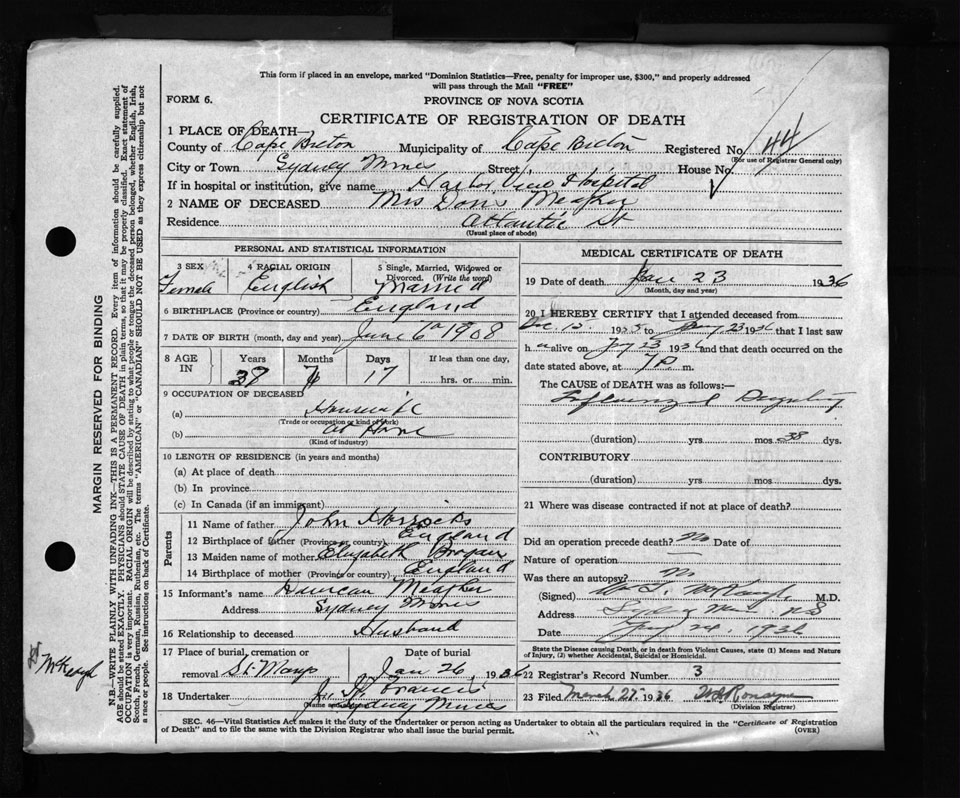 This form if placed in an envelope, marked "Dominion Statistics—Free, penalty for improper use, $300," and properly addressed
will pass through the Mail "FREE"
FORM 6.
PROVINCE OF NOVA SCOTIA
CERTIFICATE OF REGISTRATION OF DEATH
1 PLACE OF DEATH
County of Cape Breton Municipality of Cape Breton Registered No. 44
(For use of Registrar General only)
City or Town Sydney Mines Street House No.
If in hospital or institution, give name Harbor View Hospital
2 NAME OF DECEASED Mrs Doris Meagher
Residence Atlantic St
(Usual place of abode)
PERSONAL AND STATISTICAL INFORMATION
3 SEX Female
4 RACIAL ORIGIN English
5 Single, Married, Widowed or Divorced. (Write the word) Married
6 BIRTHPLACE (Province or country) England
7 DATE OF BIRTH (month, day and year) June 6 1908
8 AGE IN Years Months 7 Days 17 If less than one day, hrs. or min.
9 OCCUPATION OF DECEASED
(a) Housewife
(Trade or occupation or kind of work)
(b) At Home
(Kind of industry)
10 LENGTH OF RESIDENCE (in years and months)
(a) At place of death
(b) In province
(c) In Canada (if an immigrant)
Parents
11 Name of father John Horrocks
12 Birthplace of father (Province or country) England
13 Maiden name of mother Elizabeth
14 Birthplace of mother (Province or country) England
15 Informant's name Duncan Meagher
Address Sydney Mines
16 Relationship to deceased Husband
17 Place of burial, cremation or removal St. Marys Date of burial Jan 26, 1936
18 Undertaker Francis
Sydney Mines
MEDICAL CERTIFICATE OF DEATH
19 Date of death Jan 23 1936
(Month, day and year)
20 I HEREBY CERTIFY that I attended deceased from
Dec. 12. 1935 to Jany 23 1936 that I last saw
h alive on Jany 23 1936 and that death occurred on the
date stated above, at 7 P. m.
The CAUSE of DEATH was as follows:—
Influenzal
(duration) yrs mos 38 dys.
CONTRIBUTORY
(duration) yrs mos. dys.
21 Where was disease contracted if not at place of death?
Did an operation precede death? No Date of
Nature of operation
Was there an autopsy? No
(Signed) M.D.
Address Sydney Mines N.S
Date Jany 24. 1936
State the Disease causing Death, or in death from Violent Causes, state (1) Means and Nature
of Injury, (2) whether Accidental, Suicidal or Homicidal.
22 Registrar's Record Number 3
23 Filed March 27 1936
(Division Registrar)
SEC. 46—Vital Statistics Act makes it the duty of the Undertaker or person acting as Undertaker to obtain all the particulars required in the "Certificate of Registration
of Death" and to file the same with the Division Registrar who shall issue the burial permit.
(OVER)
MARGIN RESERVED FOR BINDING
N.B.—WRITE PLAINLY WITH UNFADING INK—THIS IS A PERMANENT RECORD. Every item of information should be carefully supplied.
AGE should be stated EXACTLY. PHYSICIANS should STATE CAUSE OF DEATH in plain terms, so that it may be properly classified. Exact statement of
OCCUPATION is very important. RACIAL ORIGIN will be described by stating to what people or tongue the deceased person belonged, whether English, Irish,
Scotch, French, German, Russian, Ruthenian, etc. The terms "AMERICAN" or "CANADIAN" SHOULD NOT BE USED as they express citizenship but not
a race or people. See instructions on back of Certificate.
Dr McKeough